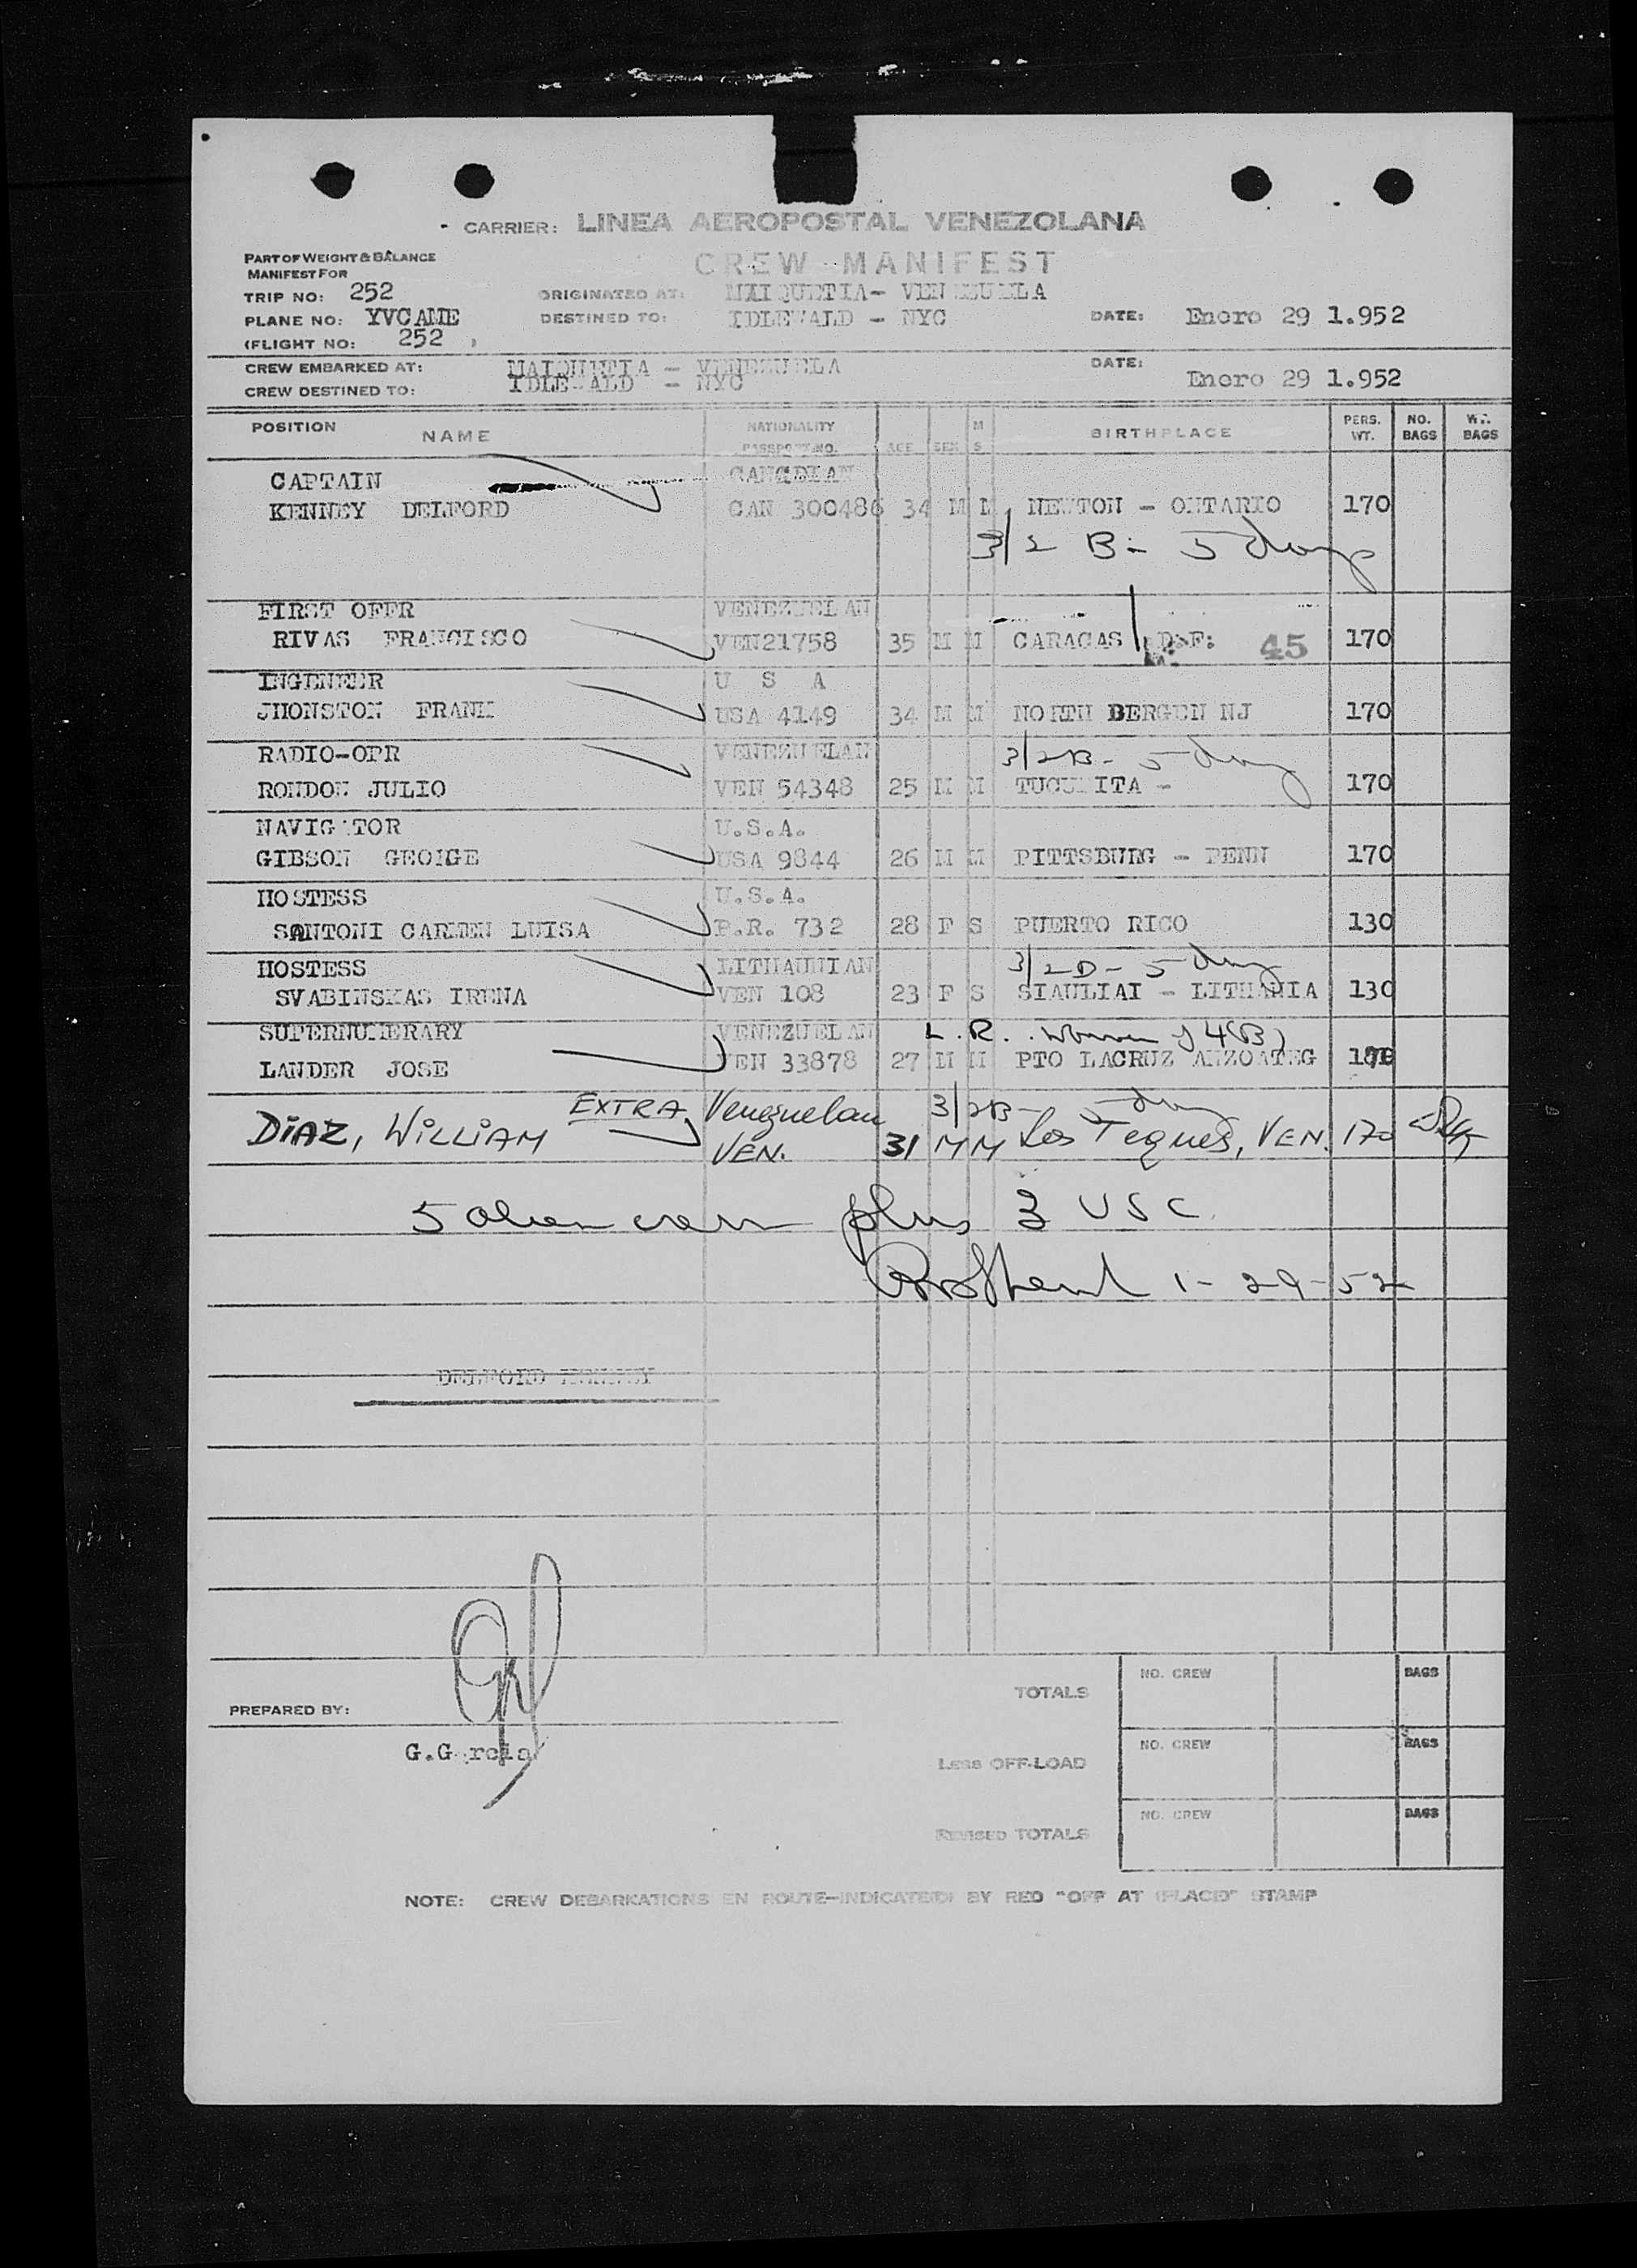 CARRIER: LINEA AEROPOSTAL VENEZOLANA
PART OF WEIGHT & BALANCE
MANIFEST FOR
CREW MANIFEST
TRIP NO: 252 ORIGINATED AT: MAIQUETIA- VENEZUELA
PLANE NO: YVCAME DESTINED TO: IDLEWALD - NYC DATE: Enero 29 1.952
(FLIGHT NO: 252 )
CREW EMBARKED AT: MAIQUETIA - VENEZUELA DATE:
CREW DESTINED TO: IDLEWALD - NYC Enero 29 1.952
POSITION NAME NATIONALITY PASSPORT NO. AGE SEX M S BIRTHPLACE PERS. WT. NO. BAGS WT. BAGS
CAPTAIN CANADIAN
KENNEY DELFORD CAN 300486 34 M M NEWTON - ONTARIO 170
3/2 B - 5 days
FIRST OFFR VENEZUELAN
RIVAS FRANCISCO VEN21758 35 M M CARACAS D.F: 45 170
INGENEER U S A
JHONSTON FRANK USA 4149 34 M M NORTH BERGEN NJ 170
RADIO-OPR VENEZUELAN 3/2B - 5 days
RONDON JULIO VEN 54348 25 M M TUCUPITA - 170
NAVIGATOR U.S.A.
GIBSON GEORGE USA 9844 26 M M PITTSBURG - PENN 170
HOSTESS U.S.A.
SANTONI CARMEN LUISA P.R. 732 28 F S PUERTO RICO 130
HOSTESS LITHAUNIAN 3/2D - 5 days
SVABINSKAS IRENA VEN 108 23 F S SIAULIAI - LITHANIA 130
SUPERNUMERARY VENEZUELAN L.R. 4(B)
LANDER JOSE VEN 33878 27 M M PTO LACRUZ ANZOATEG
EXTRA Venezuelan 3/2B - 5 days
DIAZ, WILLIAM VEN. 31 M M Los Teques, VEN. 170
5 alien crew plus 3 USC
1-29-52
DELFORD KENNEY
PREPARED BY:
G.Garcia
TOTALS NO. CREW BAGS
LESS OFF-LOAD NO. CREW BAGS
REVISED TOTALS NO. CREW BAGS
NOTE: CREW DEBARKATIONS EN ROUTE-INDICATED BY RED "OFF AT (PLACE)" STAMP